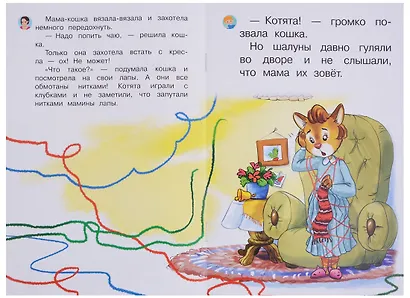 Мама-кошка вязала-вязала и захотела
немного передохнуть.
— Надо попить чаю, — решила кош-
ка.
Только она захотела встать с крес-
ла — ох! Не может!
«Что такое?» — подумала кошка и
посмотрела на свои лапы. А они все
обмотаны нитками! Котята играли с
клубками и не заметили, что запутали
нитками мамины лапы.
— Котята! — громко по-
звала кошка.
Но шалуны давно гуляли
во дворе и не слышали,
что мама их зовёт.